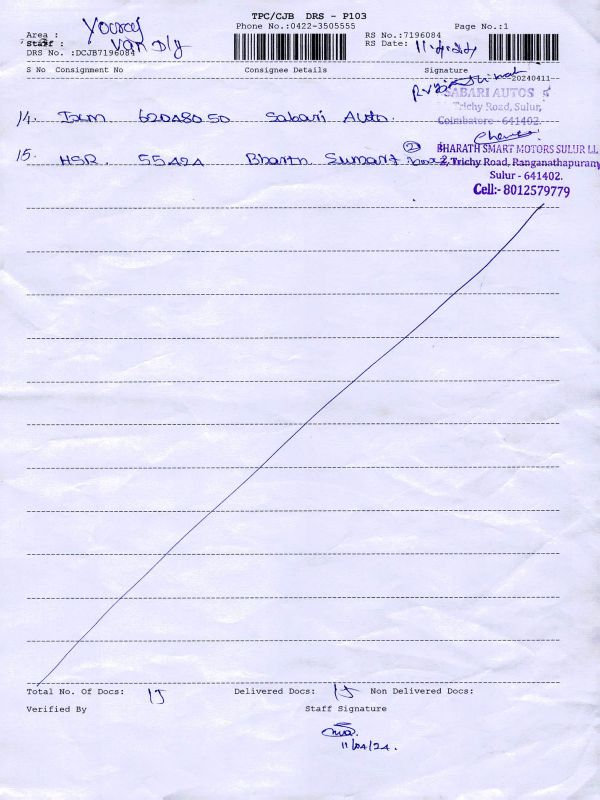 TPC/CJB DRS - P103
Phone No.:0422-3505555 Page No.:1
Area :
Staff :
Van Dly
DRS No. :DCJB7196084
RS No.:7196084
RS Date: 11.4.24
S No Consignment No Consignee Details Signature
20240411
SABARI AUTOS
Trichy Road, Sulur,
Coimbatore - 641402.
14. 62048050 Sabari Auto.
15. HSR. 55424 Bharth Sumart
BHARATH SMART MOTORS SULUR LL
2, Trichy Road, Ranganathapurany
Sulur - 641402.
Cell:- 8012579779
Total No. Of Docs: 15 Delivered Docs: 15 Non Delivered Docs:
Verified By Staff Signature
11/04/24.